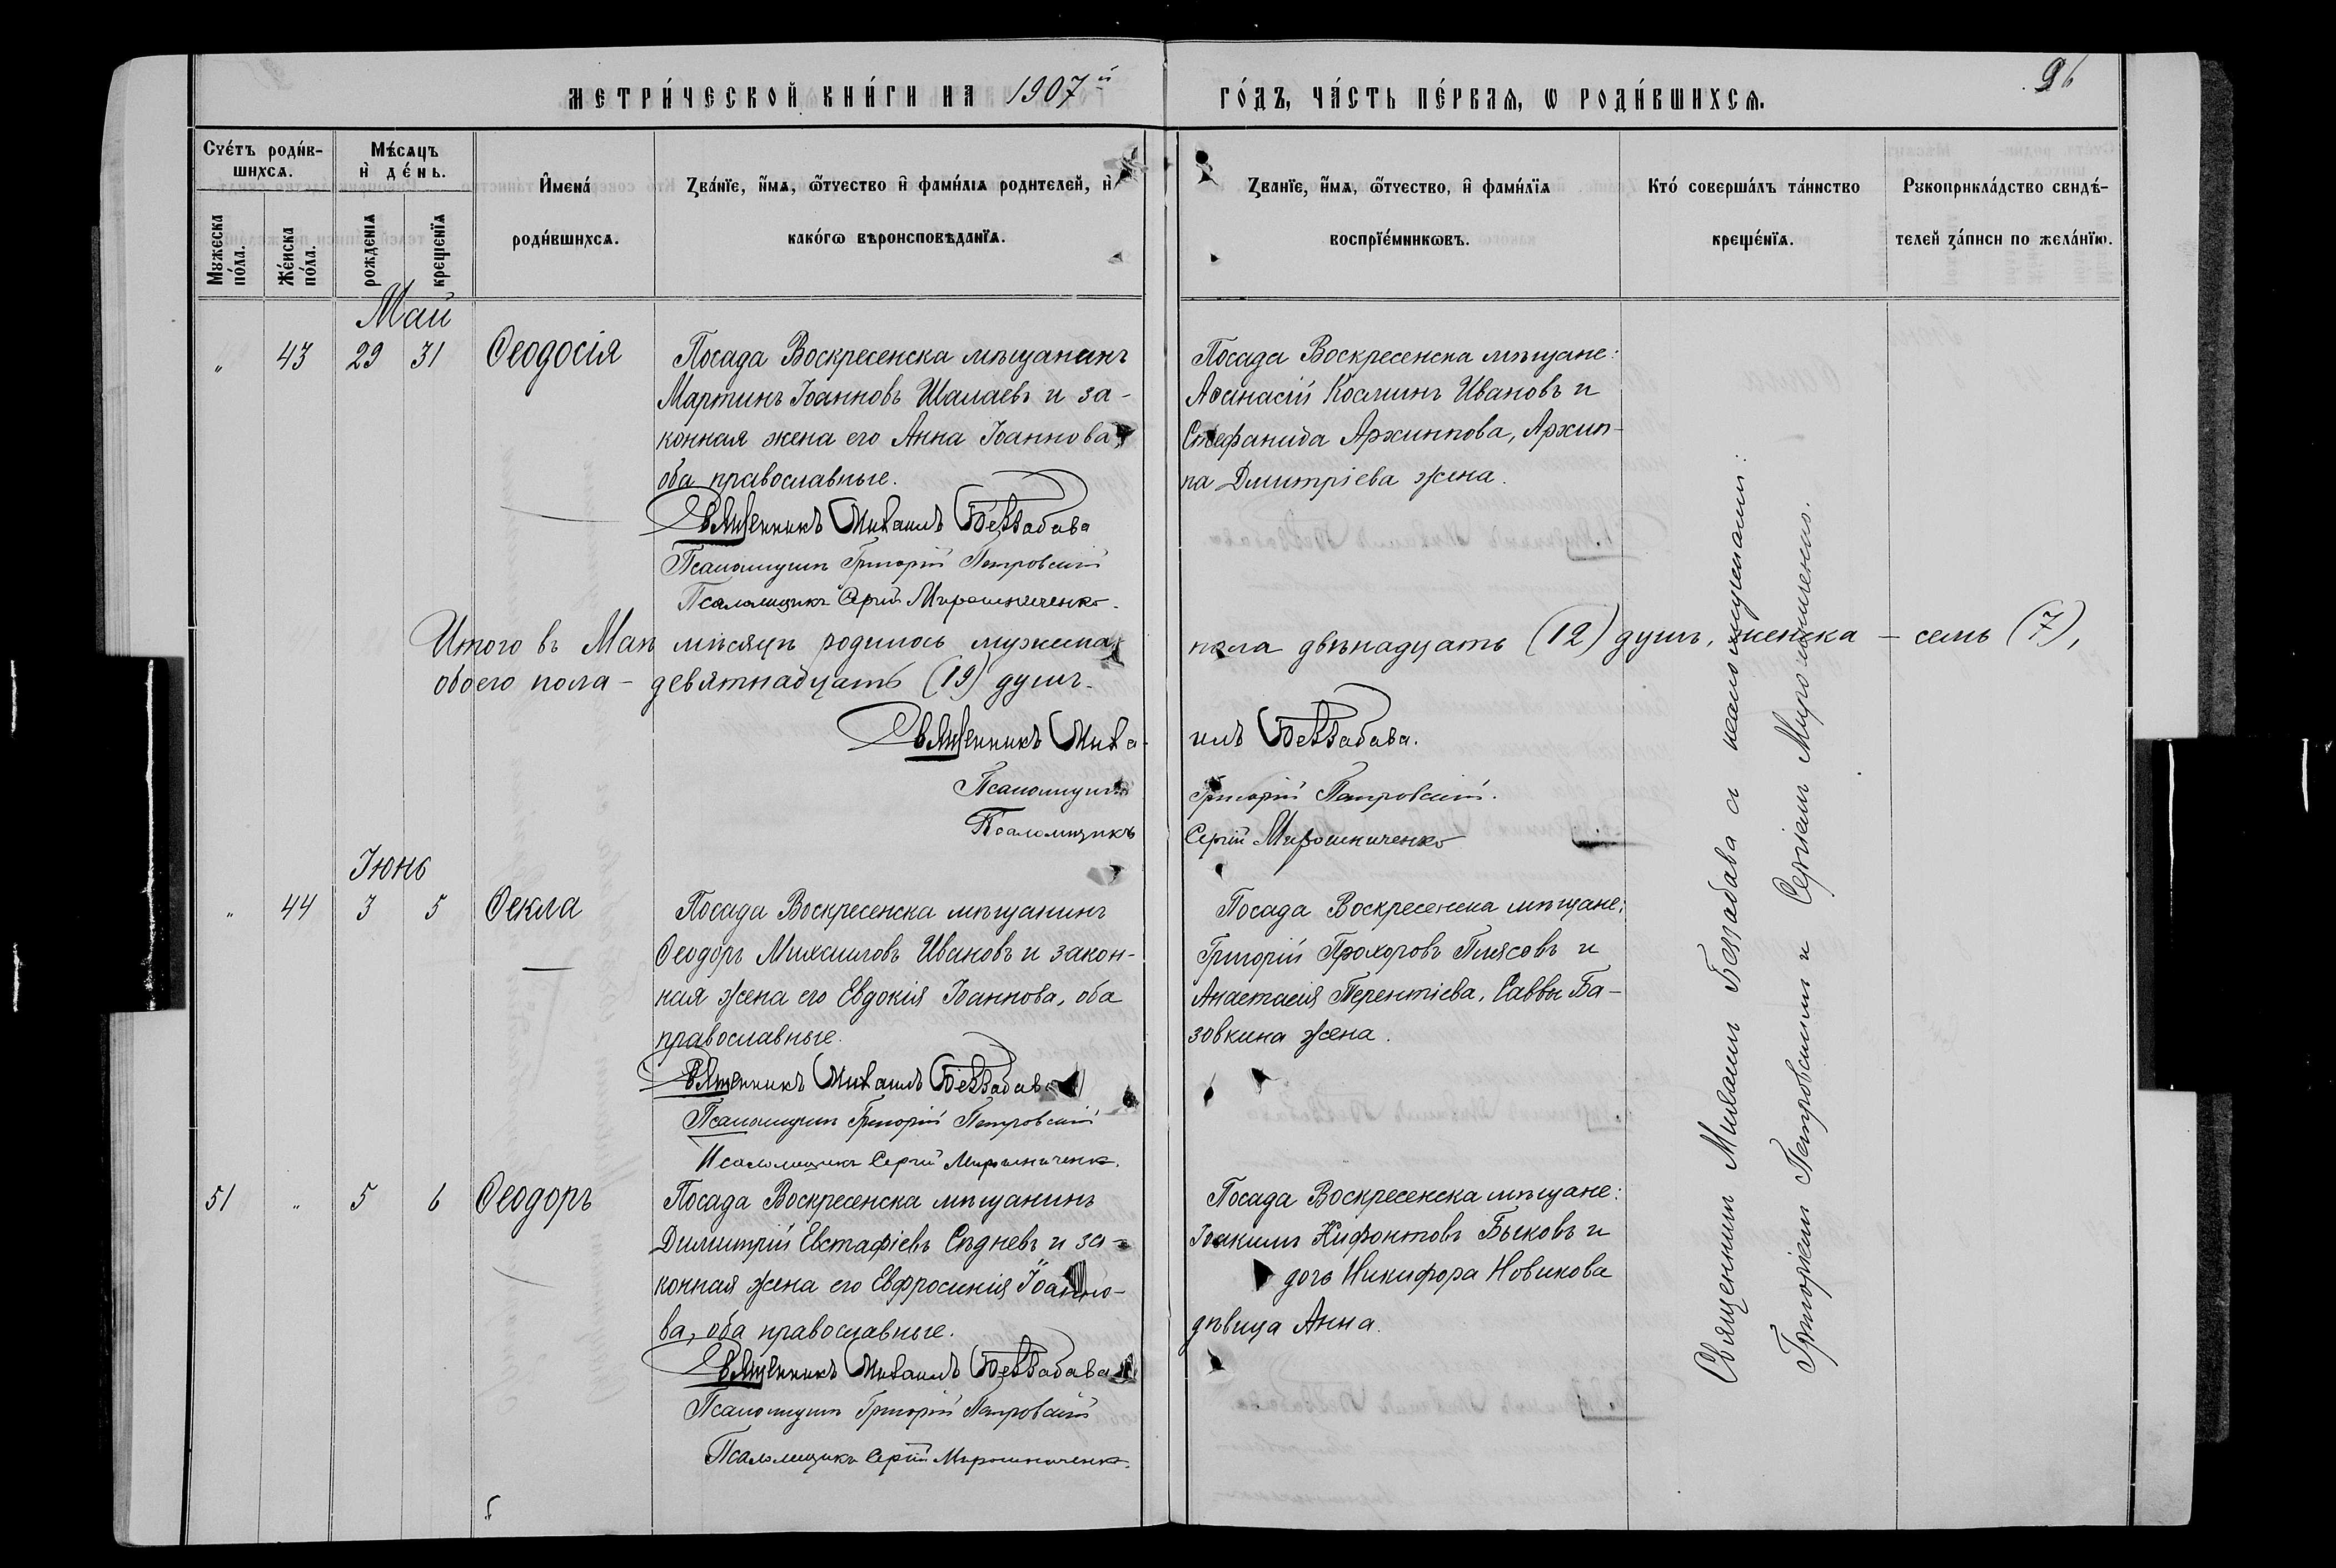 МЕТРИ́ЧЕСКОЙ КНИ́ГИ НА 1907й ГО́ДЪ, ЧА́СТЬ ПЕ́РВАѦ, Ѡ РОДИ́ВШИХСѦ.
96
Счéтъ роди́в-
шихсѧ.
Мужеска по́ла.
Же́нска по́ла.
Мѣ́сѧцъ
и҆ де́нь.
рожденїѧ
крещенїѧ
И҆мена́
роди́вшихсѧ.
Зва́нїе, и҆́мѧ, ѻ҆́тчество и҆ фами́лїѧ родителей, и҆
како́гѡ вѣроисповѣданїѧ.
Званїе, и҆́мѧ, ѻ҆́тчество, и҆ фами́лїѧ
воспрїе́мникѡвъ.
Кто́ соверша́лъ та́инство
креще́нїѧ.
Рꙋкоприкла́дство свидѣ́-
телей за́писи по жела́нїю.
Май
" 43 29 31 Ѳеодосія
Посада Воскресенска мѣщанинъ
Мартинъ Іоанновъ Шалаевъ и за-
конная жена его Анна Іоаннова,
оба православные.
Священникъ Михаилъ Беззабава
Псаломщикъ Григорій Петровскій
Псаломщикъ Сергій Мирошниченко.
Посада Воскресенска мѣщане:
Аѳанасій Косминъ Ивановъ и
Стефанида Архиппова, Архип-
па Дмитріева жена.
Итого въ Маѣ мѣсяцѣ родилось мужеска пола двѣнадцать (12) душъ, женска – семь (7),
обоего пола – девятнадцать (19) душъ.
Священникъ Михаилъ Беззабава.
Псаломщикъ Григорій Петровскій.
Псаломщикъ Сергій Мирошниченко
Іюнь
" 44 3 5 Ѳекла
Посада Воскресенска мѣщанинъ
Ѳеодоръ Михаиловъ Ивановъ и закон-
ная жена его Евдокія Іоаннова, оба
православные.
Священникъ Михаилъ Беззабава
Псаломщикъ Григорій Петровскій
Псаломщикъ Сергій Мирошниченко.
Посада Воскресенска мѣщане:
Григорій Прохоровъ Плясовъ и
Анастасія Терентіева, Саввы Ба-
зовкина жена.
51 " 5 6 Ѳеодоръ
Посада Воскресенска мѣщанинъ
Димитрій Евстафіевъ Сѣдневъ и за-
конная жена его Евфросинія Іоанно-
ва, оба православные.
Священникъ Михаилъ Беззабава
Псаломщикъ Григорій Петровскій
Псаломщикъ Сергій Мирошниченко.
Посада Воскресенска мѣщане:
Іоакимъ Ксифонтовъ Быковъ и
дочь Никифора Новикова
дѣвица Анна.
Священникъ Михаилъ Беззабава съ псаломщиками:
Григоріемъ Петровскимъ и Сергіемъ Мирошниченко.